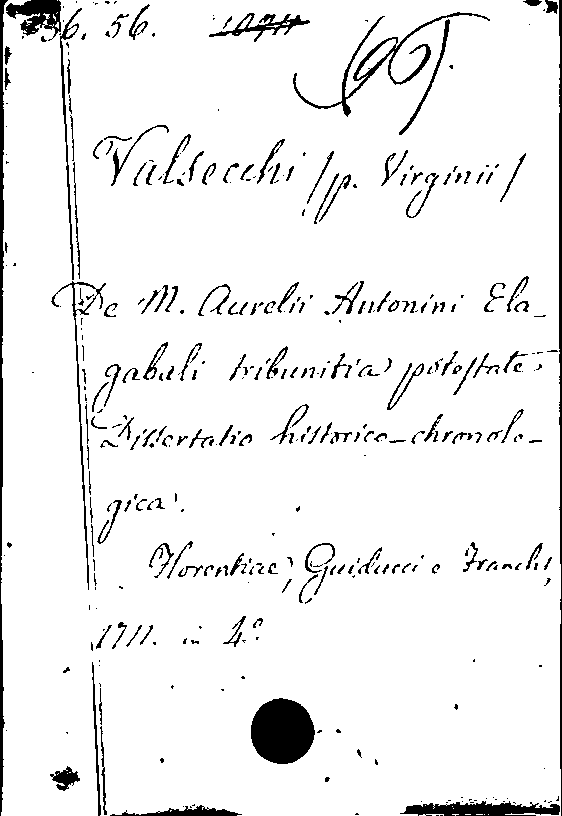 36. 56.
Valsecchi /p. Virginii/
De M. Aurelii Antonini Ela-
gabali tribunitia potestate.
Dissertatio historico-chronolo-
gica.
Florentiae, Guiducci e Franchi,
1711. in 4.º